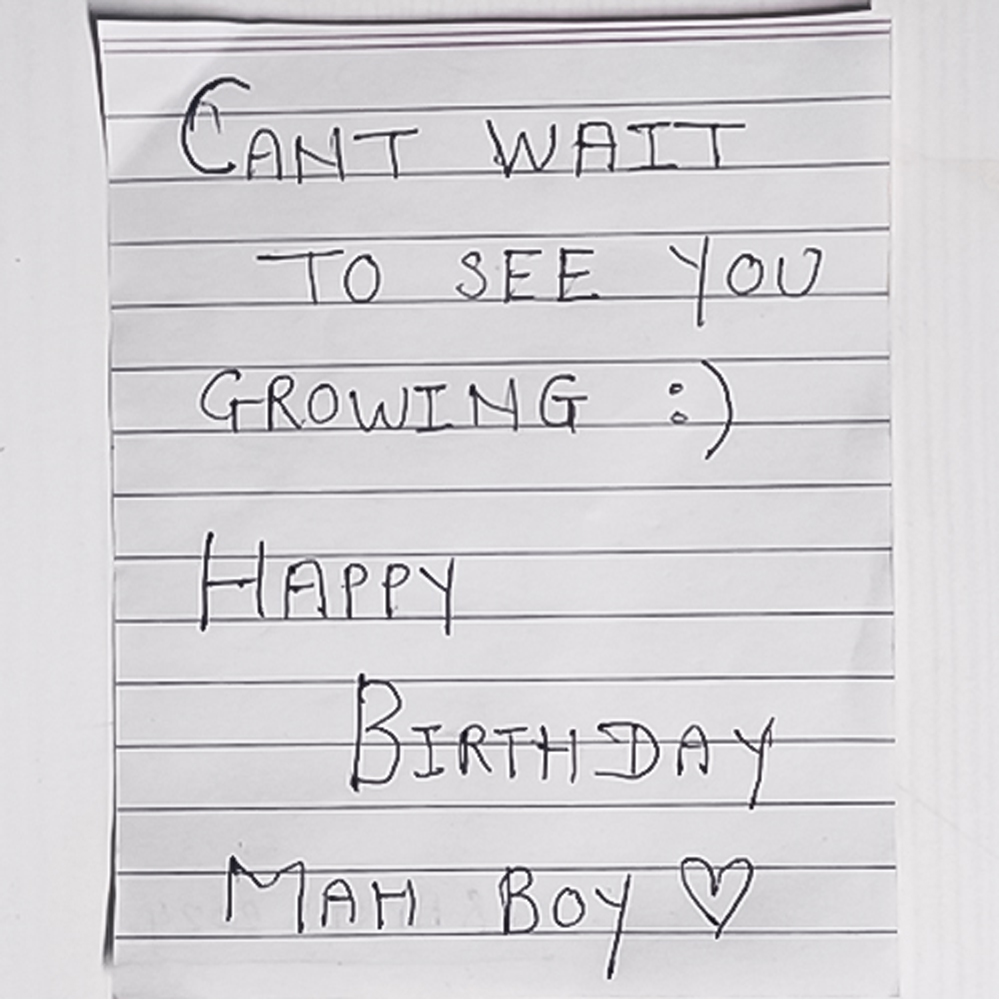 CANT WAIT
TO SEE YOU
GROWING :)
HAPPY
BIRTHDAY
MAH BOY ♡